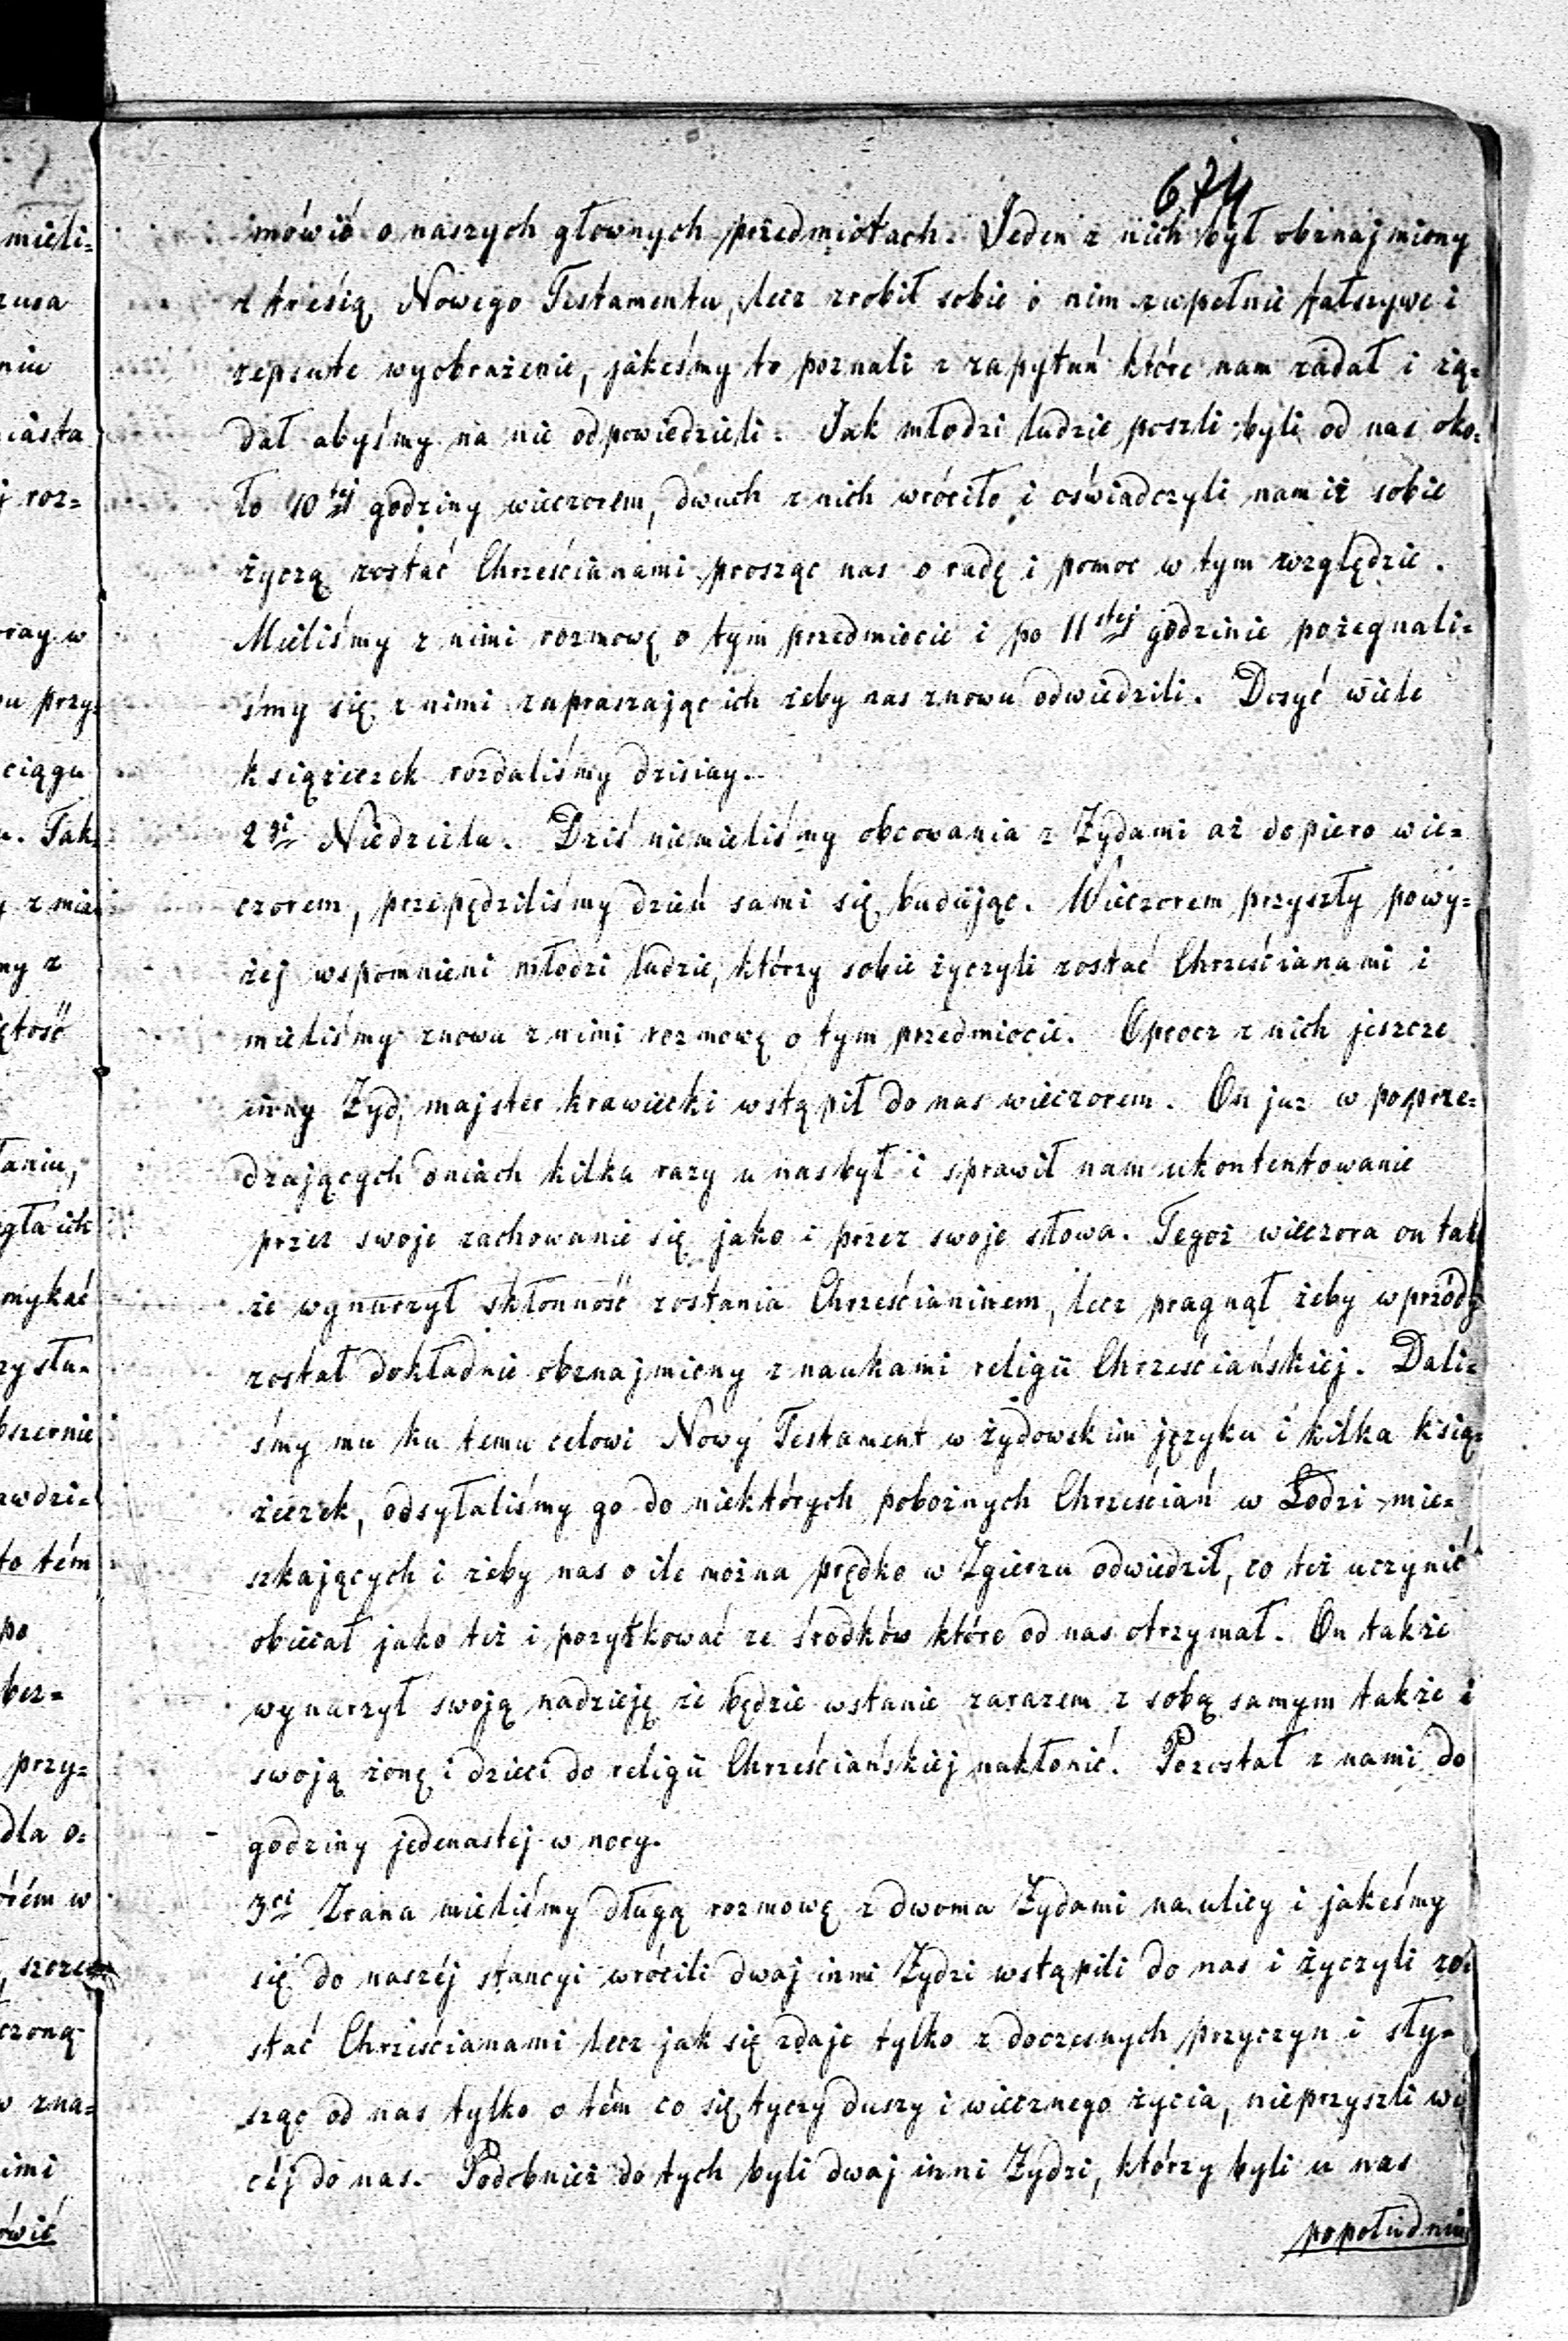 674
mówić o naszych głownych przedmiotach. Jeden z nich był obznajmiony
z treśią Nowego Testamentu, lecz zrobił sobie o nim zupełnie fałszywe i
zepsute wyobrażenie, jakeśmy to poznali z zapytań które nam zadał i żą=
dał abyśmy na nie odpowiedzieli. Jak młodzi ludzie poszli byli od nas oko=
ło 10tej godziny wieczorem, dwuch z nich wróciło i oświadczyli nam iż sobie
życzą zostać Chrześcianami prosząc nas o radę i pomoc w tym względzie.
Mieliśmy z nimi rozmowę o tym przedmiocie i po 11stej godzinie pożegnali=
śmy się z nimi zapraszając ich żeby nas znowu odwiedzili. Dosyć wiele
książeczek rozdaliśmy dzisiay.
2gi Niedziela. Dziś niemieliśmy obcowania z Żydami aż dopiero wie=
czorem, przepędziliśmy dzień sami się budując. Wieczorem przyszły powy=
żej wspomnieni młodzi ludzie, którzy sobie życzyli zostać Chrześcianami i
mieliśmy znowu z nimi rozmowę o tym przedmiocie. Oprocz z nich jeszcze
inny Żyd, majster krawiecki wstąpił do nas wieczorem. On juz w poprze=
dzających dniach kilka razy u nas był i sprawił nam ukontentowanie
przez swoje zachowanie się jako i przez swoje słowa. Tegoż wieczora on tak
że wynurzył skłonność zostania Chrześcianinem, lecz pragnął żeby wprzódy
został dokładnie obznajmiony z naukami religii Chrześciańskiej. Dali=
śmy mu ku temu celowi Nowy Testament w żydowskim języku i kilka ksią=
żeczek, odsyłaliśmy go do niektórych pobożnych Chrześcian w Łodzi mie=
szkających i żeby nas o ile można prędko w Zgierzu odwiedził, co też uczynić
obiecał jako też i pozyskować ze środków które od nas otrzymał. On także
wynurzył swoją nadzieję że będzie wstanie zarazem z sobą samym także i
swoją żonę i dzieci do religii Chrześciańskiej nakłonić. Pozostał z nami do
godziny jedenastej w nocy.
3ci Zrana mieliśmy długą rozmowę z dwoma Żydami na ulicy i jakeśmy
się do naszéj stancyi wrócili dwaj inni Żydzi wstąpili do nas i życzyli zo=
stać Chrześcianami lecz jak się zdaje tylko z doczesnych przyczyn i sły=
sząc od nas tylko o tém co się tyczy duszy i wiecznego życia, nieprzyszli wię
céj do nas. Podobnież do tych byli dwaj inni Żydzi, którzy byli u nas
popołudniu